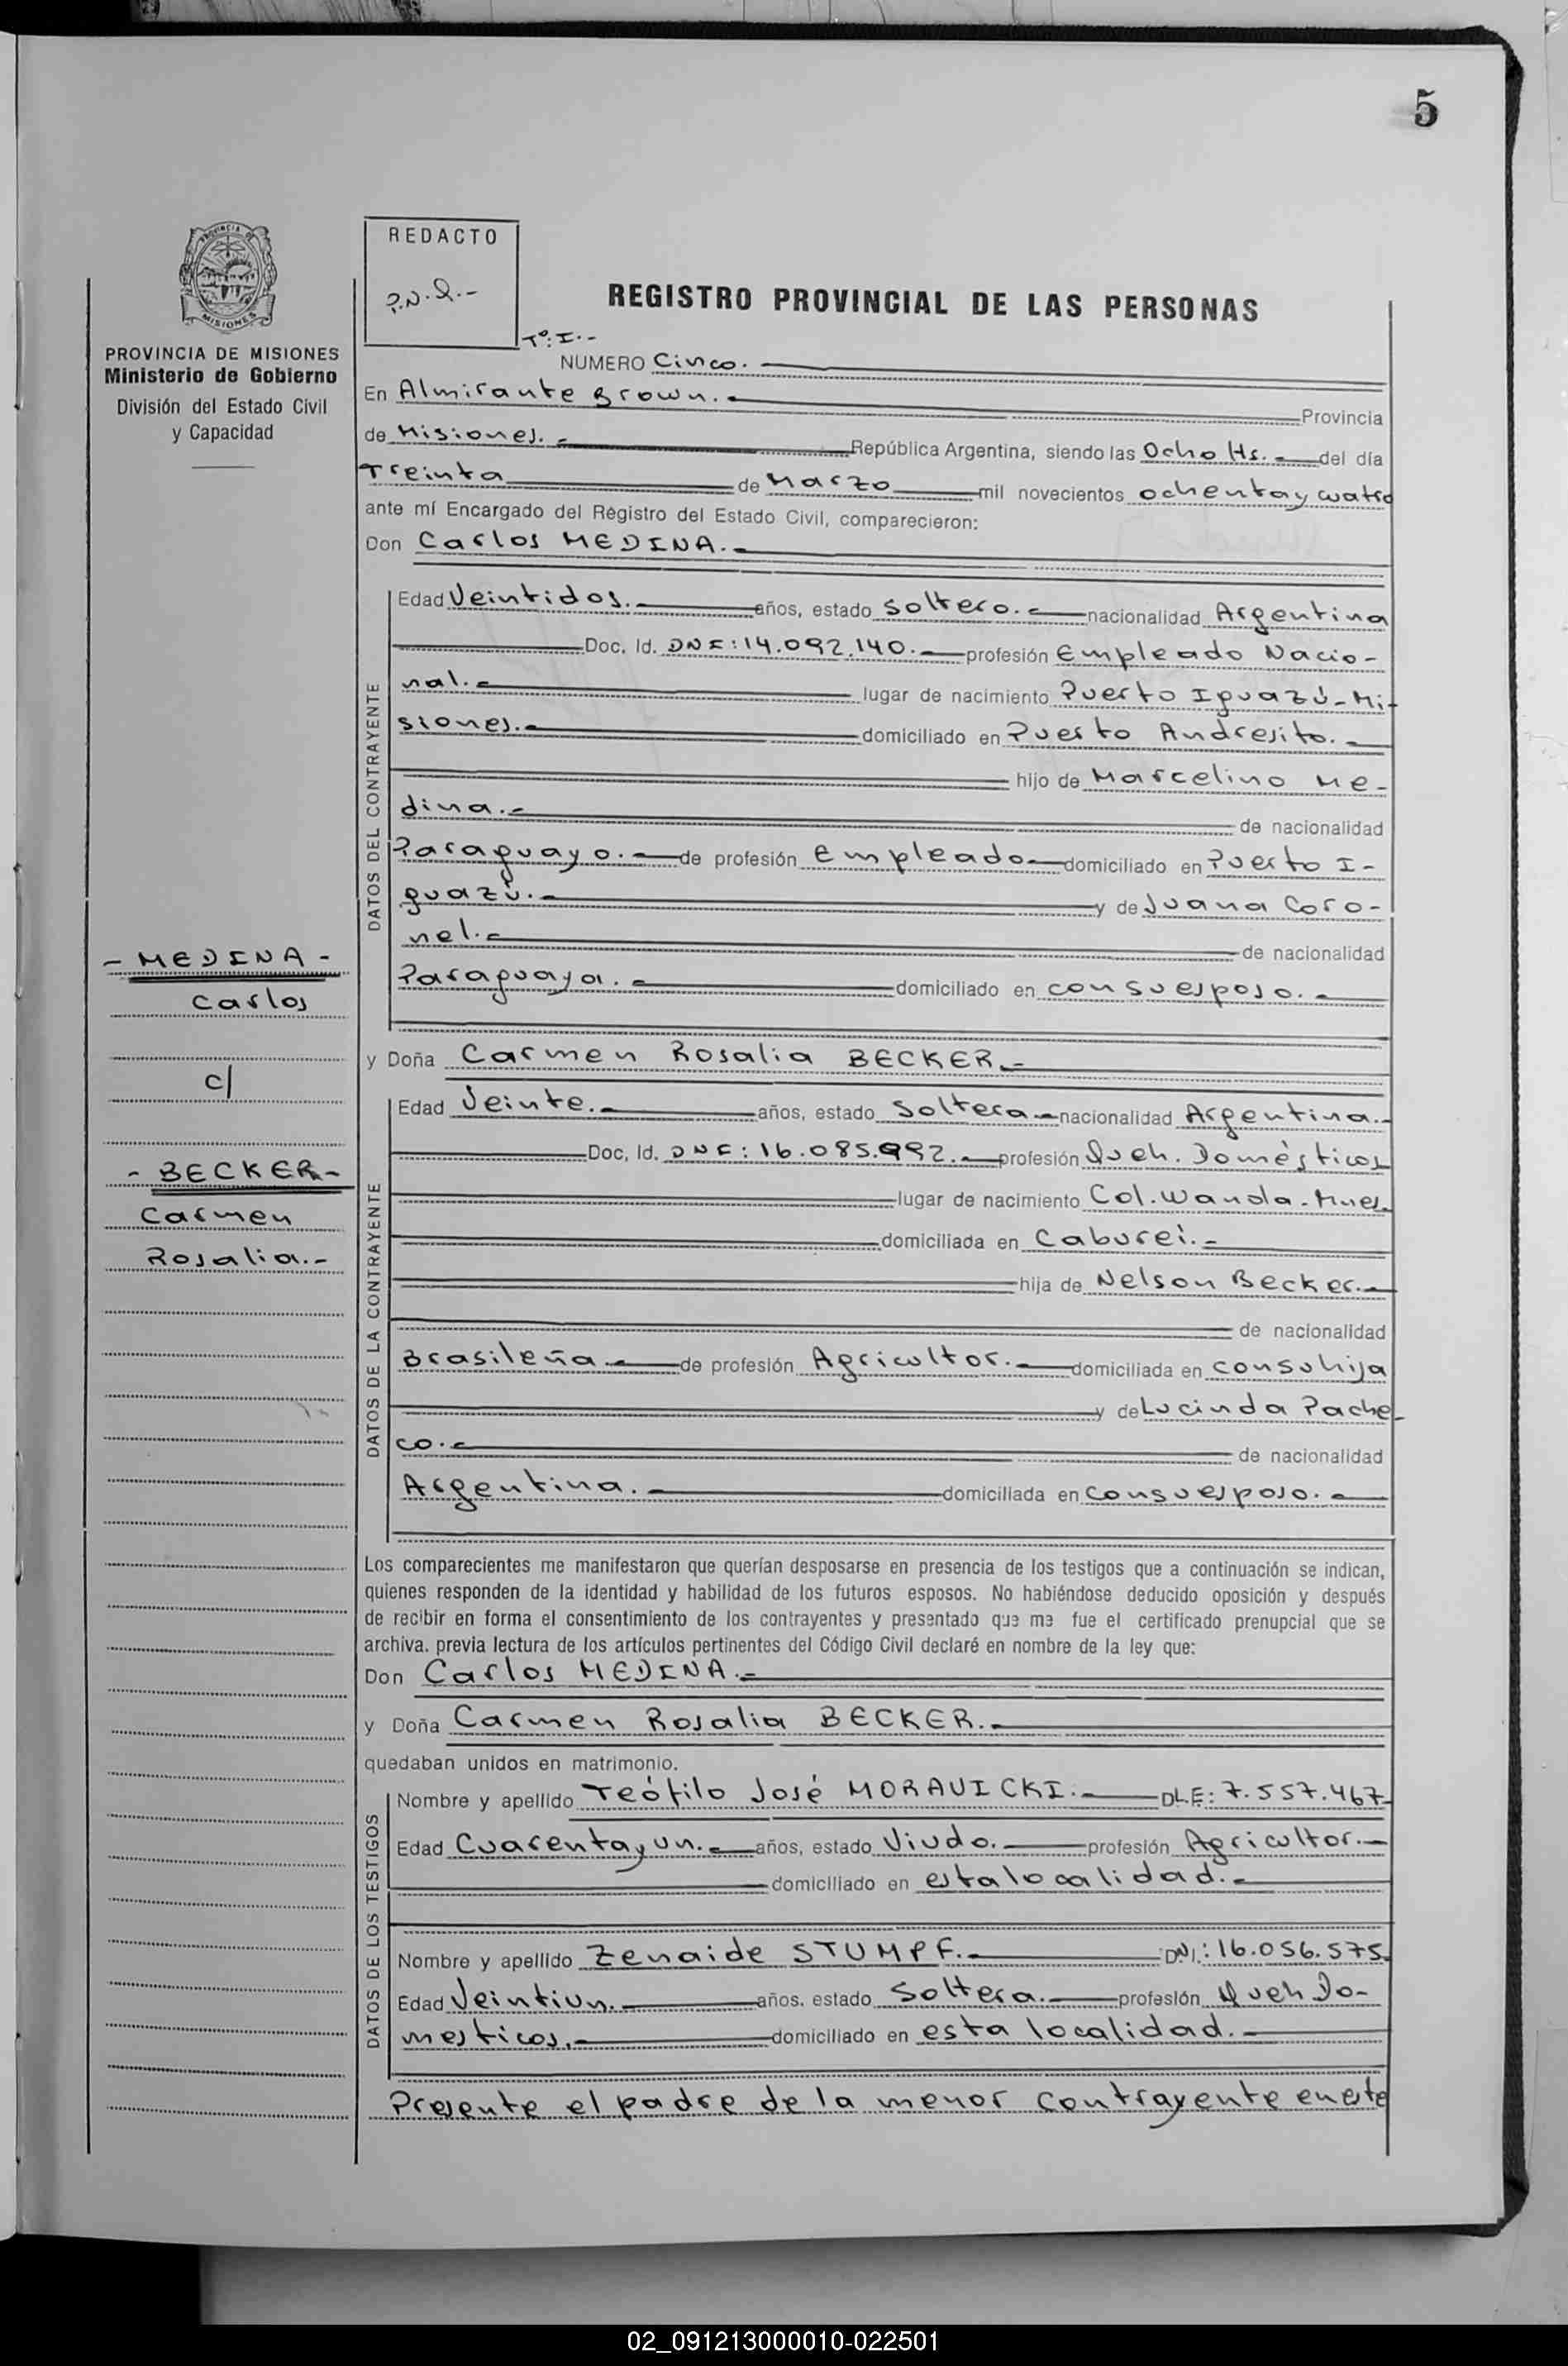 5
PROVINCIA DE
MISIONES
PROVINCIA DE MISIONES
Ministerio de Gobierno
División del Estado Civil
y Capacidad
REDACTO
T°: I.-
REGISTRO PROVINCIAL DE LAS PERSONAS
NUMERO Cinco.
En Almirante Brown.- Provincia
de Misiones.- República Argentina, siendo las Ocho Hs.- del día
Treinta de Marzo mil novecientos ochenta y cuatro
ante mí Encargado del Registro del Estado Civil, comparecieron:
Don Carlos MEDINA.-
DATOS DEL CONTRAYENTE
Edad Veintidos.- años, estado soltero.- nacionalidad Argentina
Doc. Id. DNI: 14.092.140.- profesión Empleado Nacio-
nal.- lugar de nacimiento Puerto Iguazú-Mi-
siones.- domiciliado en Puerto Andresito.-
hijo de Marcelino Me-
dina.- de nacionalidad
Paraguayo.- de profesión Empleado- domiciliado en Puerto I-
guazú.- y de Juana Coro-
nel.- de nacionalidad
Paraguaya.- domiciliado en con su esposo.-
y Doña Carmen Rosalia BECKER.-
DATOS DE LA CONTRAYENTE
Edad Veinte.- años, estado Soltera- nacionalidad Argentina.-
Doc. Id. DNI: 16.085.992.- profesión Queh. Domésticos
lugar de nacimiento Col. Wanda-Mnes.
domiciliada en Caburei.-
hija de Nelson Becker.-
de nacionalidad
Brasileña.- de profesión Agricultor.- domiciliada en con su hija
y de Lucinda Pache-
co.- de nacionalidad
Argentina.- domiciliada en con su esposo.-
- MEDINA -
Carlos
c/
- BECKER -
Carmen
Rosalia.-
Los comparecientes me manifestaron que querían desposarse en presencia de los testigos que a continuación se indican,
quienes responden de la identidad y habilidad de los futuros esposos. No habiéndose deducido oposición y después
de recibir en forma el consentimiento de los contrayentes y presentado que me fue el certificado prenupcial que se
archiva. previa lectura de los artículos pertinentes del Código Civil declaré en nombre de la ley que:
Don Carlos MEDINA.-
y Doña Carmen Rosalia BECKER.-
quedaban unidos en matrimonio.
DATOS DE LOS TESTIGOS
Nombre y apellido Teófilo José MORAVICKI.- DLE: 7.557.467
Edad Cuarenta y un.- años, estado Viudo.- profesión Agricultor.-
domiciliado en esta localidad.-
Nombre y apellido Zenaide STUMPF.- DNI.: 16.056.575
Edad Veintiun.- años. estado Soltera.- profesión Queh Do-
mesticos.- domiciliado en esta localidad.-
Presente el padre de la menor contrayente en este
02_091213000010-022501